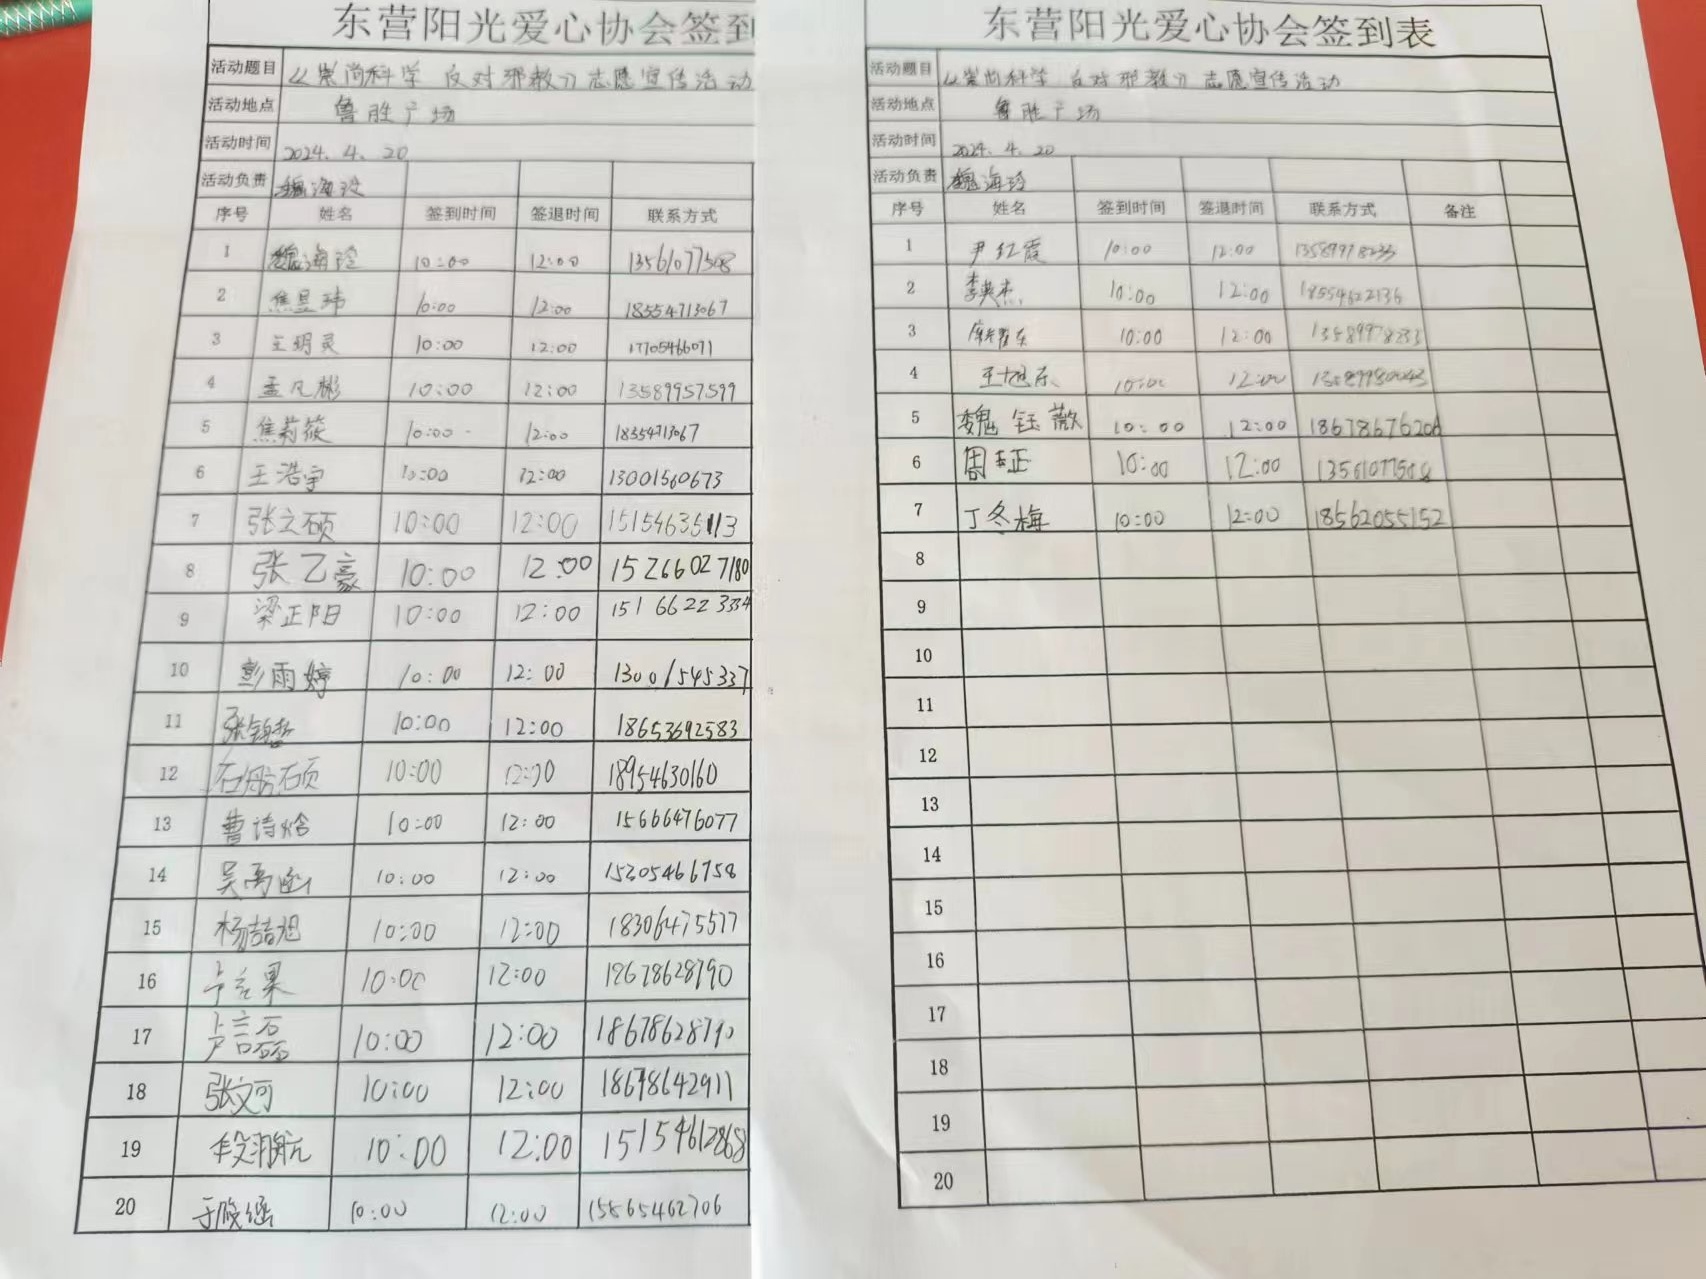 东营阳光爱心协会签到
活动题目 《崇尚科学 反对邪教》志愿宣传活动
活动地点 鲁胜广场
活动时间 2024.4.20
活动负责 魏海玲
序号 姓名 签到时间 签退时间 联系方式
1 魏海玲 10:00 12:00 13561077508
2 焦昱玮 10:00 12:00 18554713067
3 王玥灵 10:00 12:00 17705466071
4 孟凡彬 10:00 12:00 13589957599
5 焦莉筱 10:00 12:00 18354713067
6 王浩宇 10:00 12:00 13001560673
7 张文硕 10:00 12:00 15154635113
8 张乙豪 10:00 12:00 15266027180
9 梁正阳 10:00 12:00 15166223334
10 彭雨婷 10:00 12:00 13001545337
11 10:00 12:00 18653692583
12 10:00 12:00 18954630160
13 曹诗焓 10:00 12:00 15666476077
14 吴禹函 10:00 12:00 15305466758
15 杨喆旭 10:00 12:00 18306475577
16 10:00 12:00 18678628790
17 卢言磊 10:00 12:00 18678628790
18 张文可 10:00 12:00 18678642911
19 10:00 12:00 15154612868
20 10:00 12:00 15865462706
东营阳光爱心协会签到表
活动题目 《崇尚科学 反对邪教》志愿宣传活动
活动地点 鲁胜广场
活动时间 2024.4.20
活动负责 魏海玲
序号 姓名 签到时间 签退时间 联系方式 备注
1 尹红霞 10:00 12:00 13589978233
2 李英杰 10:00 12:00 18554622136
3 10:00 12:00 13589978233
4 王旭东 10:00 12:00
5 魏钰薇 10:00 12:00 18678676206
6 10:00 12:00 13561077508
7 丁冬梅 10:00 12:00 18562055152
8
9
10
11
12
13
14
15
16
17
18
19
20